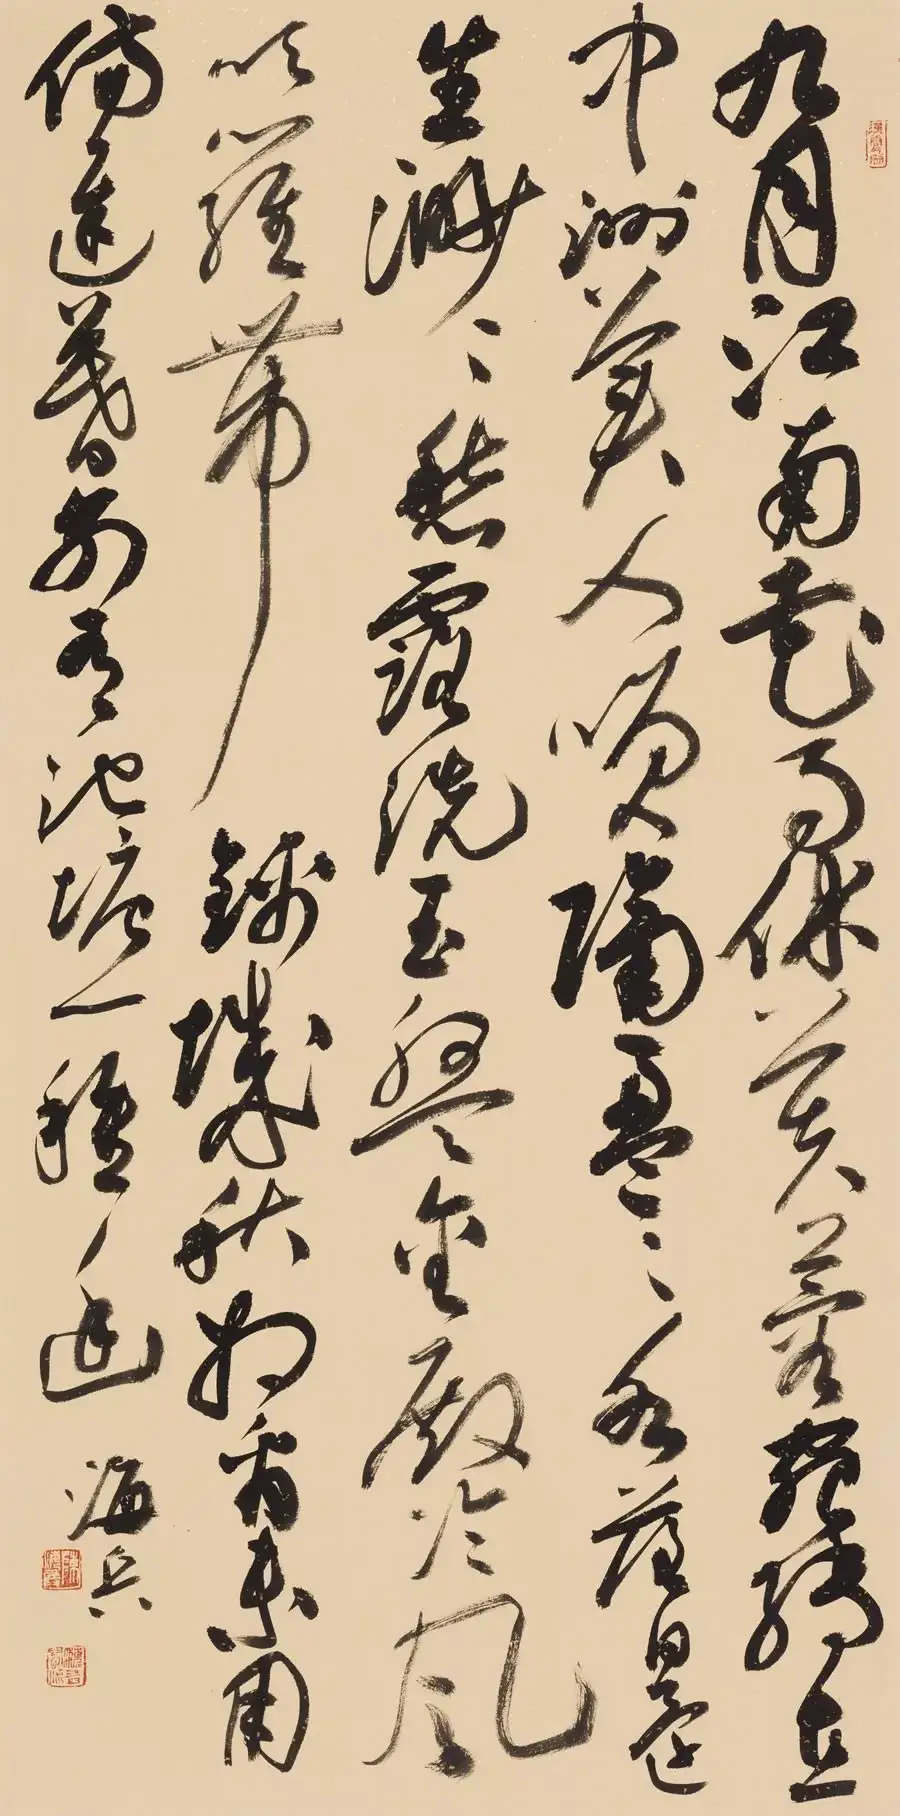 九月江南花事休芙蓉宛轉在
中洲美人笑隔盈盈水落日還
生渺渺愁露洗玉盤金殿冷風
吹羅帶錦城秋相看未用
傷遲暮別有池塘一種幽
海兵